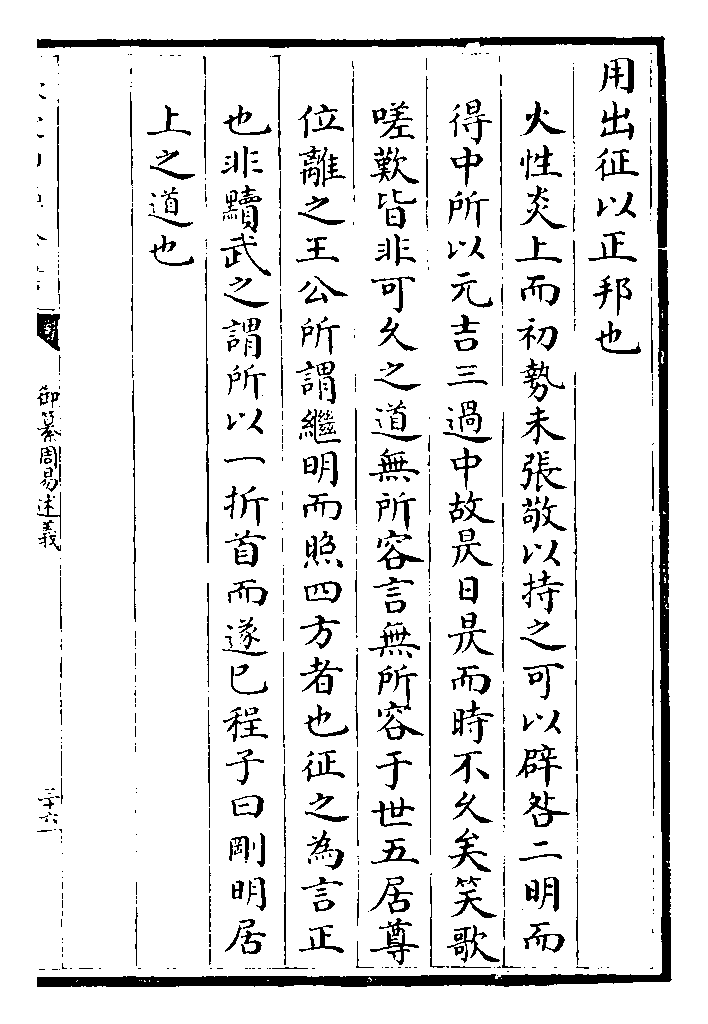 用出征以正邦也
火性炎上而初勢未張敬以持之可以辟咎二明而
得中所以元吉三過中故昃日昃而時不久矣笑歌
嗟歎皆非可久之道無所容言無所容于世五居尊
位離之王公所謂繼明而照四方者也征之為言正
也非黷武之謂所以一折首而遂已程子曰剛明居
上之道也
御纂周易述義
三十六